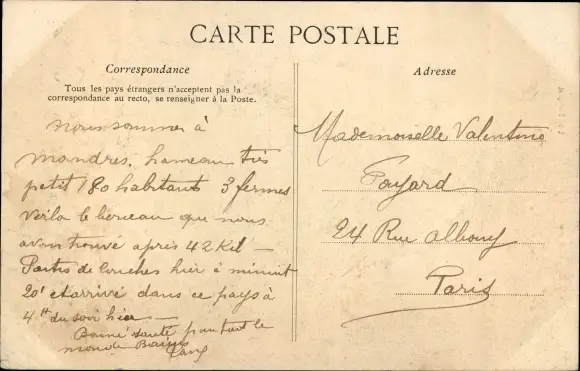 CARTE POSTALE
Correspondance
Tous les pays étrangers n'acceptent pas la
correspondance au recto, se renseigner à la Poste.
nous sommes à
mandres, hameau très
petit 180 habitants 3 fermes
voila le berceau que nous
avons trouvé après 42 Kil –
Partis de Conches hier à minuit
20' et arrivé dans ce pays à
4 H du soir hier –
Bonne santé partout le
monde Baisers
Adresse
Mademoiselle Valentine
Foyard
24 Rue Albouy
Paris